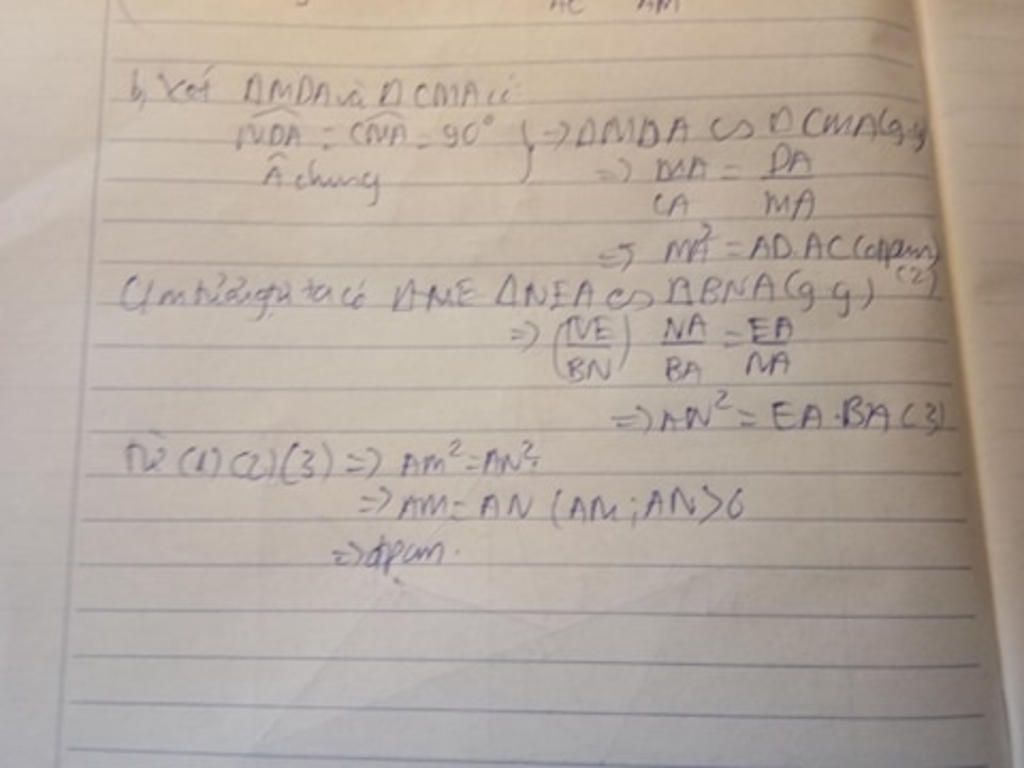 AC AM
b, Xét ΔMDA và ΔCMA có:
MDA = CMA = 90° } => ΔMDA ∽ ΔCMA (g.g)
Â chung => MA/CA = DA/MA
=> MA² = AD.AC (đpcm) (2)
Cm tương tự ta có ΔNE ΔNEA ∽ ΔBNA (g.g)
=> (NE/BN) NA/BA = EA/NA
=> AN² = EA.BA (3)
Từ (1) (2) (3) => AM² = AN²
=> AM = AN (AM; AN > 0
=> đpcm.